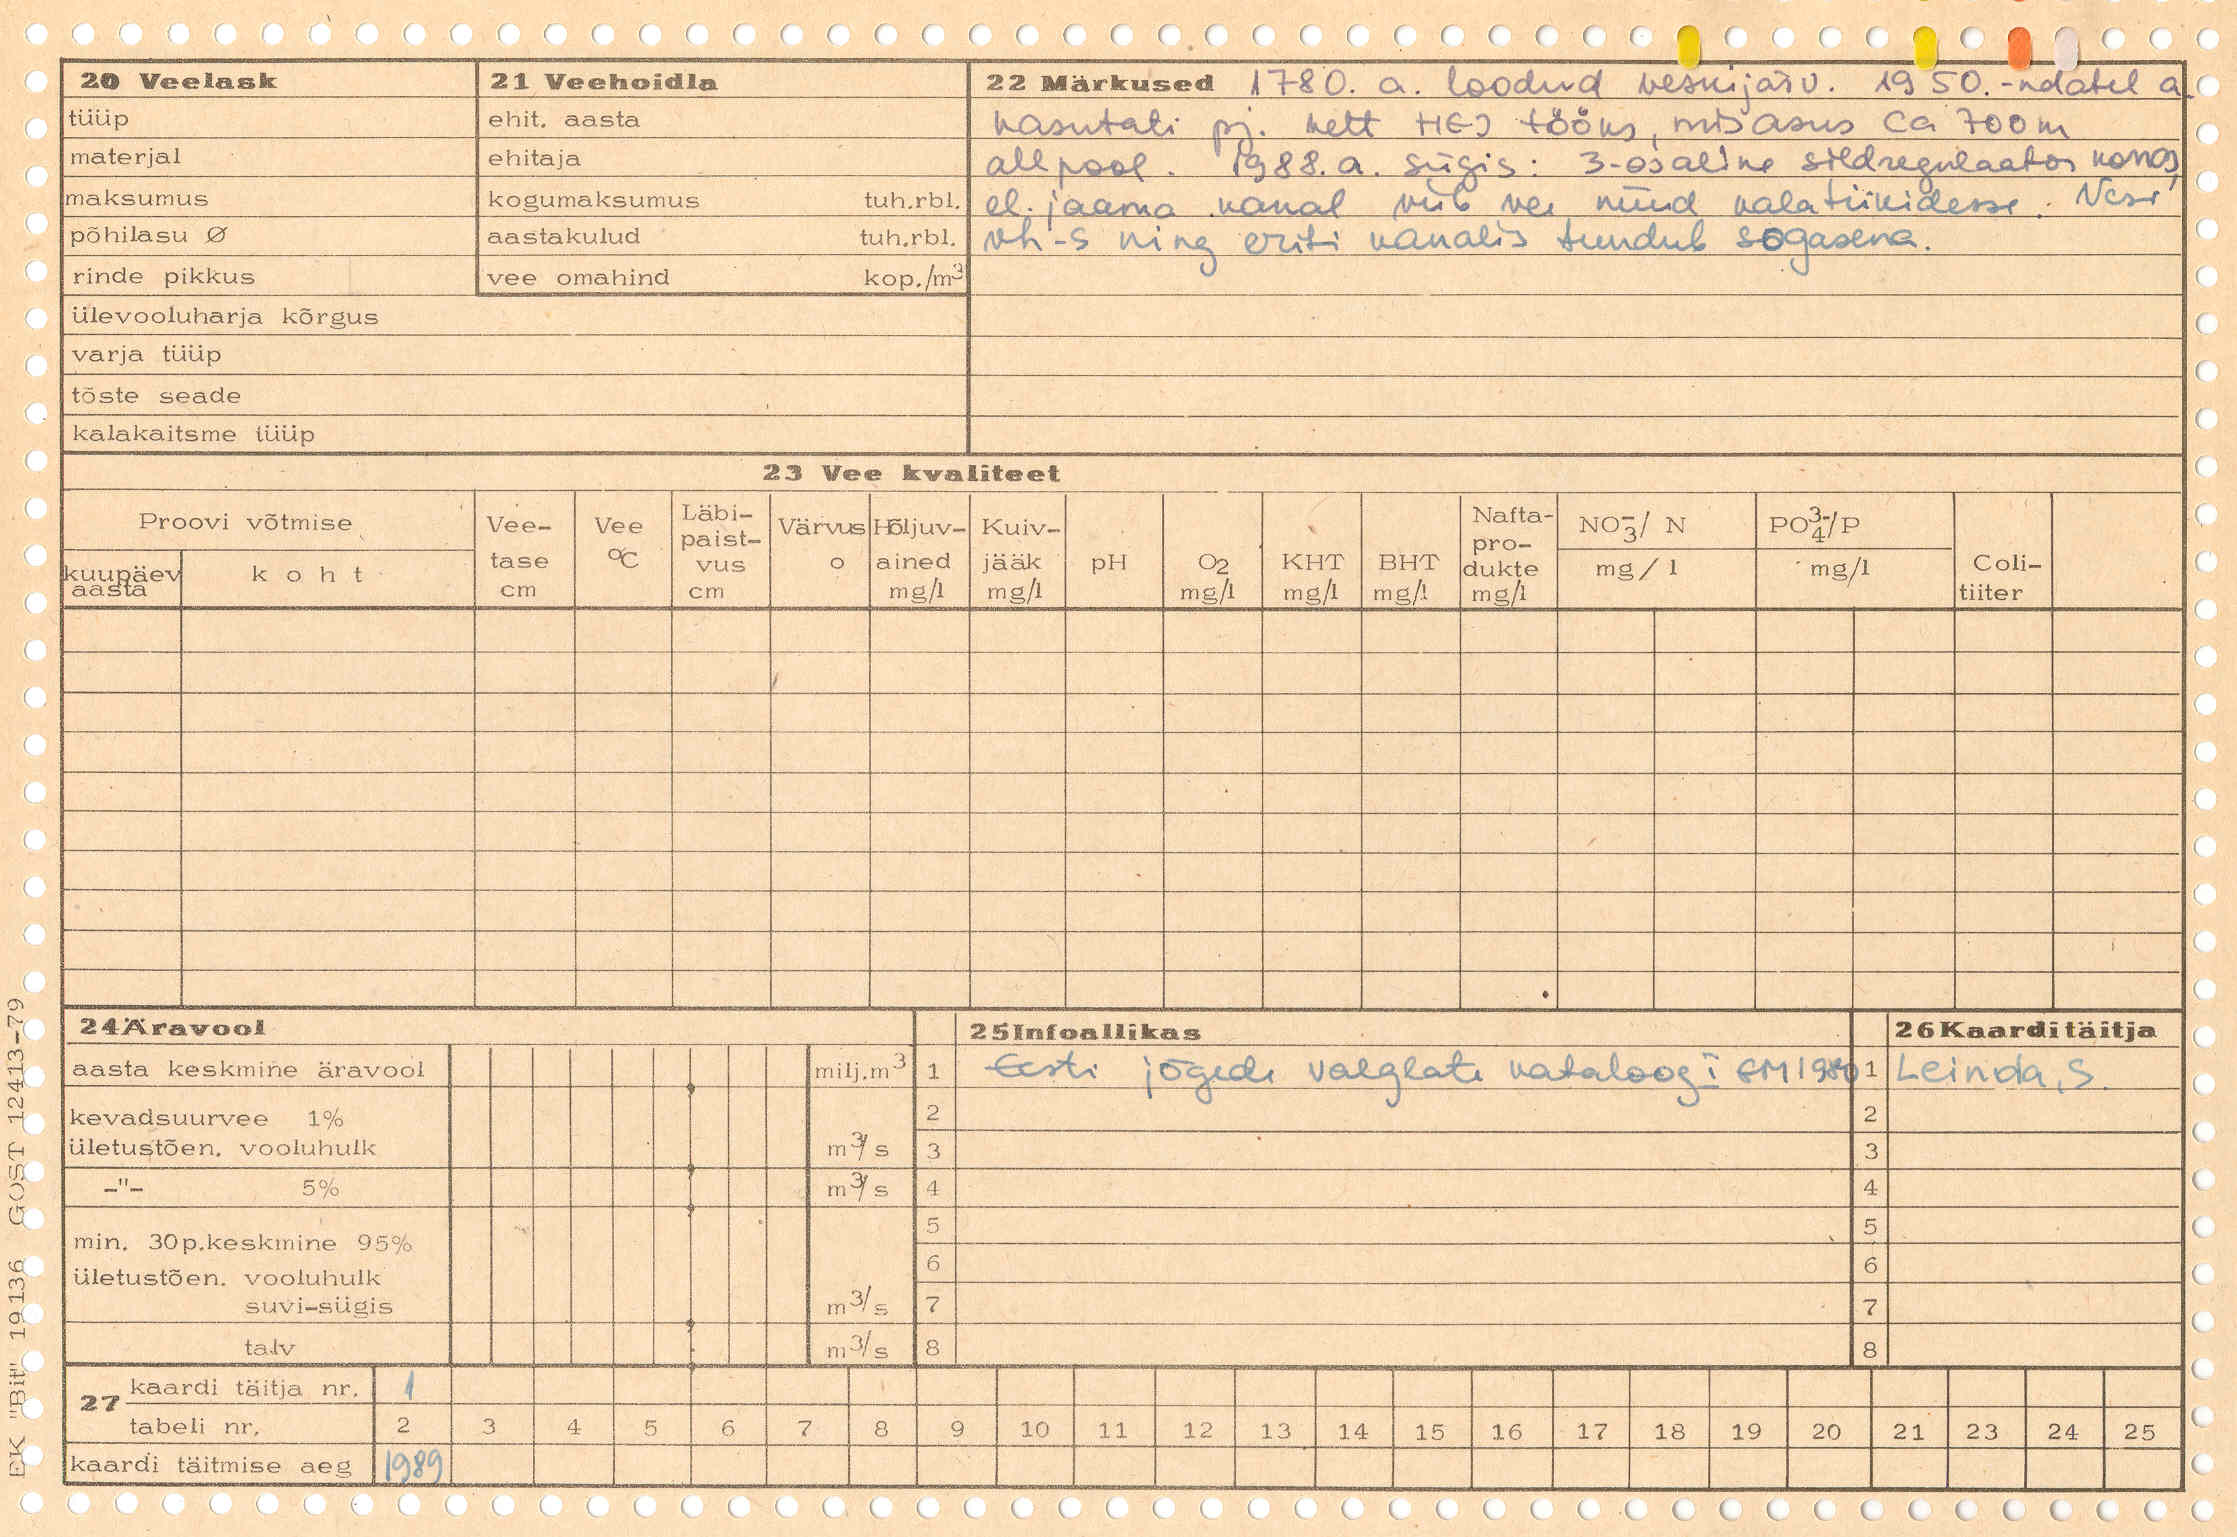 20 Veelask
tüüp
materjal
maksumus
põhilasu Ø
rinde pikkus
ülevooluharja kõrgus
varja tüüp
tõste seade
kalakaitsme tüüp
21 Veehoidla
ehit. aasta
ehitaja
kogumaksumus tuh.rbl.
aastakulud tuh.rbl.
vee omahind kop./m³
22 Märkused 1780. a. loodud veskijärv. 1950.-ndatel a.
kasutati pj. vett HEJ tööks, mis asus ca 700 m
allpool. 1988.a. sügis: 3-osaline sildregulaator korras,
el. jaama kanal viib vee nüüd kalatiikidesse. Vesi
vh-s ning eriti kanalis tundub sogasena.
23 Vee kvaliteet
Proovi võtmise
kuupäev aasta
koht
Vee-tase cm
Vee °C
Läbi-paist-vus cm
Värvus o
Hõljuv-ained mg/l
Kuiv-jääk mg/l
pH
O₂ mg/l
KHT mg/l
BHT mg/l
Nafta-pro-dukte mg/l
NO₃⁻/ N mg/l
PO₄³⁻/P mg/l
Coli-tiiter
24 Äravool
aasta keskmine äravool milj.m³
kevadsuurvee 1%
ületustõen. vooluhulk m³/s
-"- 5% m³/s
min. 30p.keskmine 95%
ületustõen. vooluhulk
suvi-sügis m³/s
talv m³/s
25 Infoallikas
1 Eesti jõgede valglate kataloog I EM 1980
2
3
4
5
6
7
8
26 Kaardi täitja
1 Leinda, S.
2
3
4
5
6
7
8
27 kaardi täitja nr. 1
tabeli nr. 2 3 4 5 6 7 8 9 10 11 12 13 14 15 16 17 18 19 20 21 23 24 25
kaardi täitmise aeg 1989
EK "Bit" 19136 GOST 12413-79